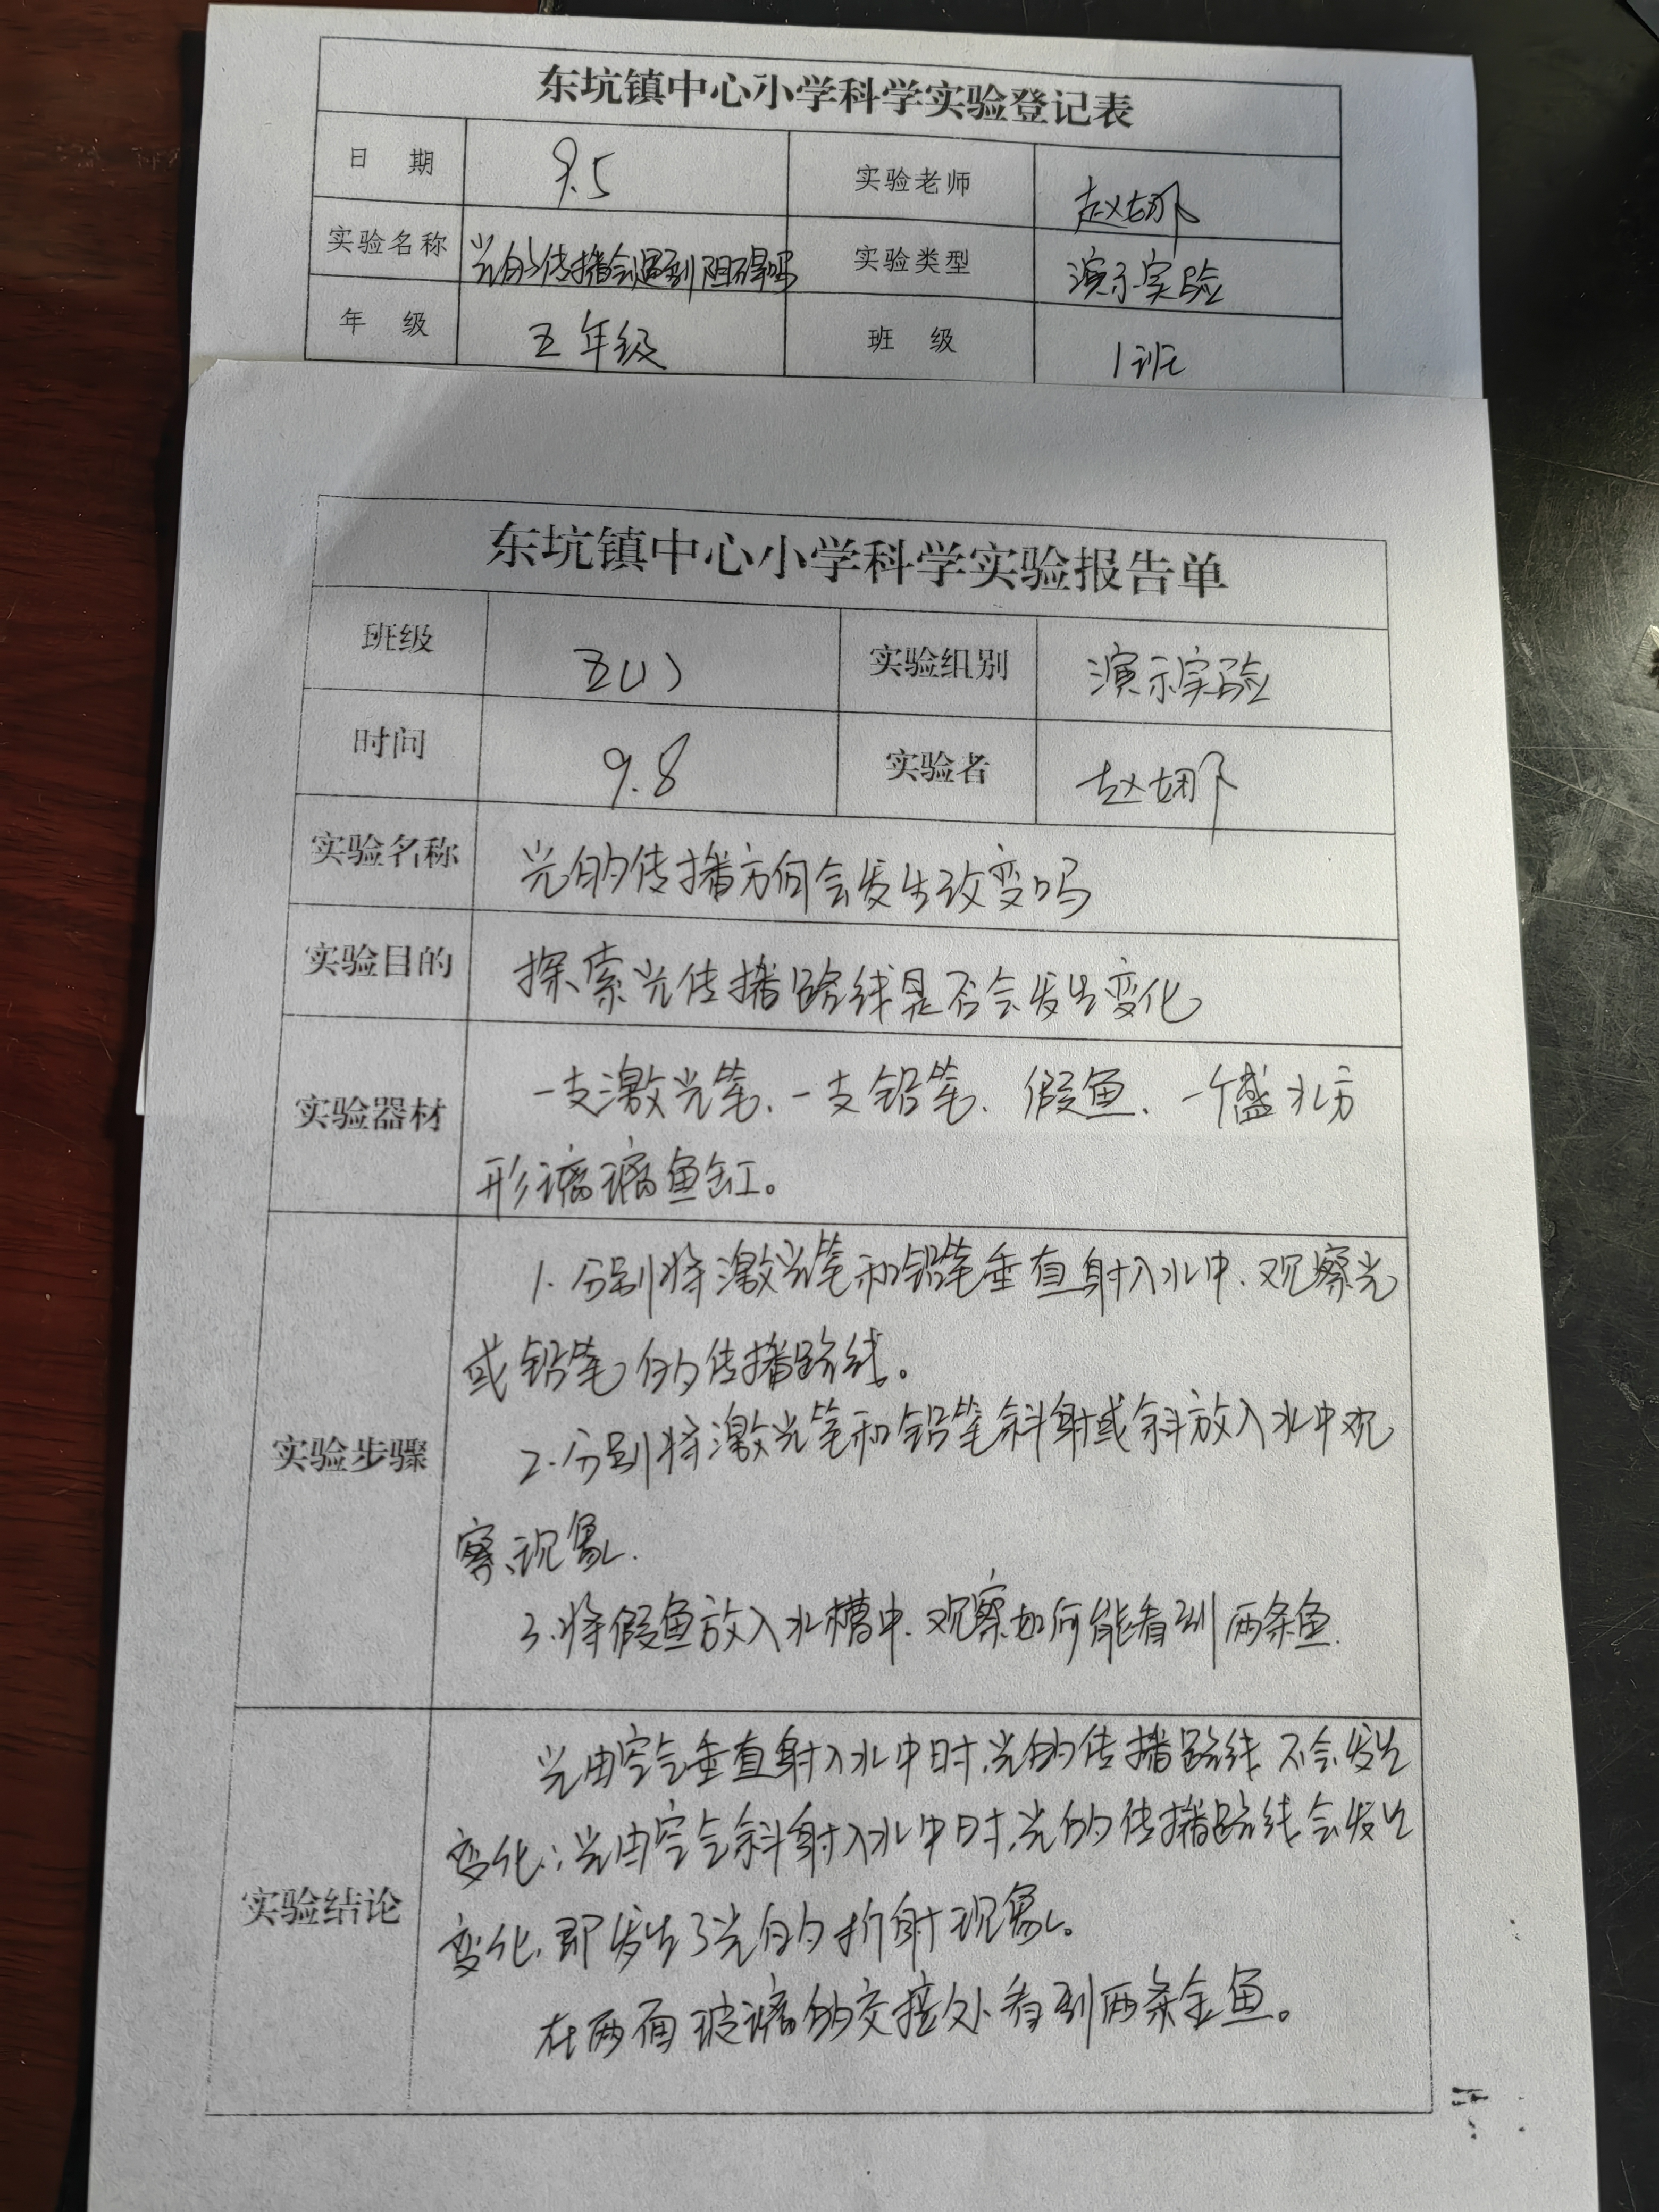 东坑镇中心小学科学实验登记表
日 期 9.5 实验老师 赵娜
实验名称 光的传播会遇到阻碍吗 实验类型 演示实验
年 级 五年级 班 级 1班
东坑镇中心小学科学实验报告单
班级 五(1) 实验组别 演示实验
时间 9.8 实验者 赵娜
实验名称 光的传播方向会发生改变吗
实验目的 探索光传播路线是否会发生变化
实验器材 一支激光笔、一支铅笔、假鱼、一个盛水方
形璃璃鱼缸。
实验步骤
1. 分别将激光笔和铅笔垂直射入水中、观察光
或铅笔的传播路线。
2. 分别将激光笔和铅笔斜射或斜放入水中观
察现象.
3. 将假鱼放入水槽中、观察如何能看到两条鱼.
实验结论
光由空气垂直射入水中时,光的传播路线不会发生
变化;光由空气斜射入水中时,光的传播路线会发生
变化,即发生了光的折射现象。
在两面玻璃的交接处看到两条金鱼。